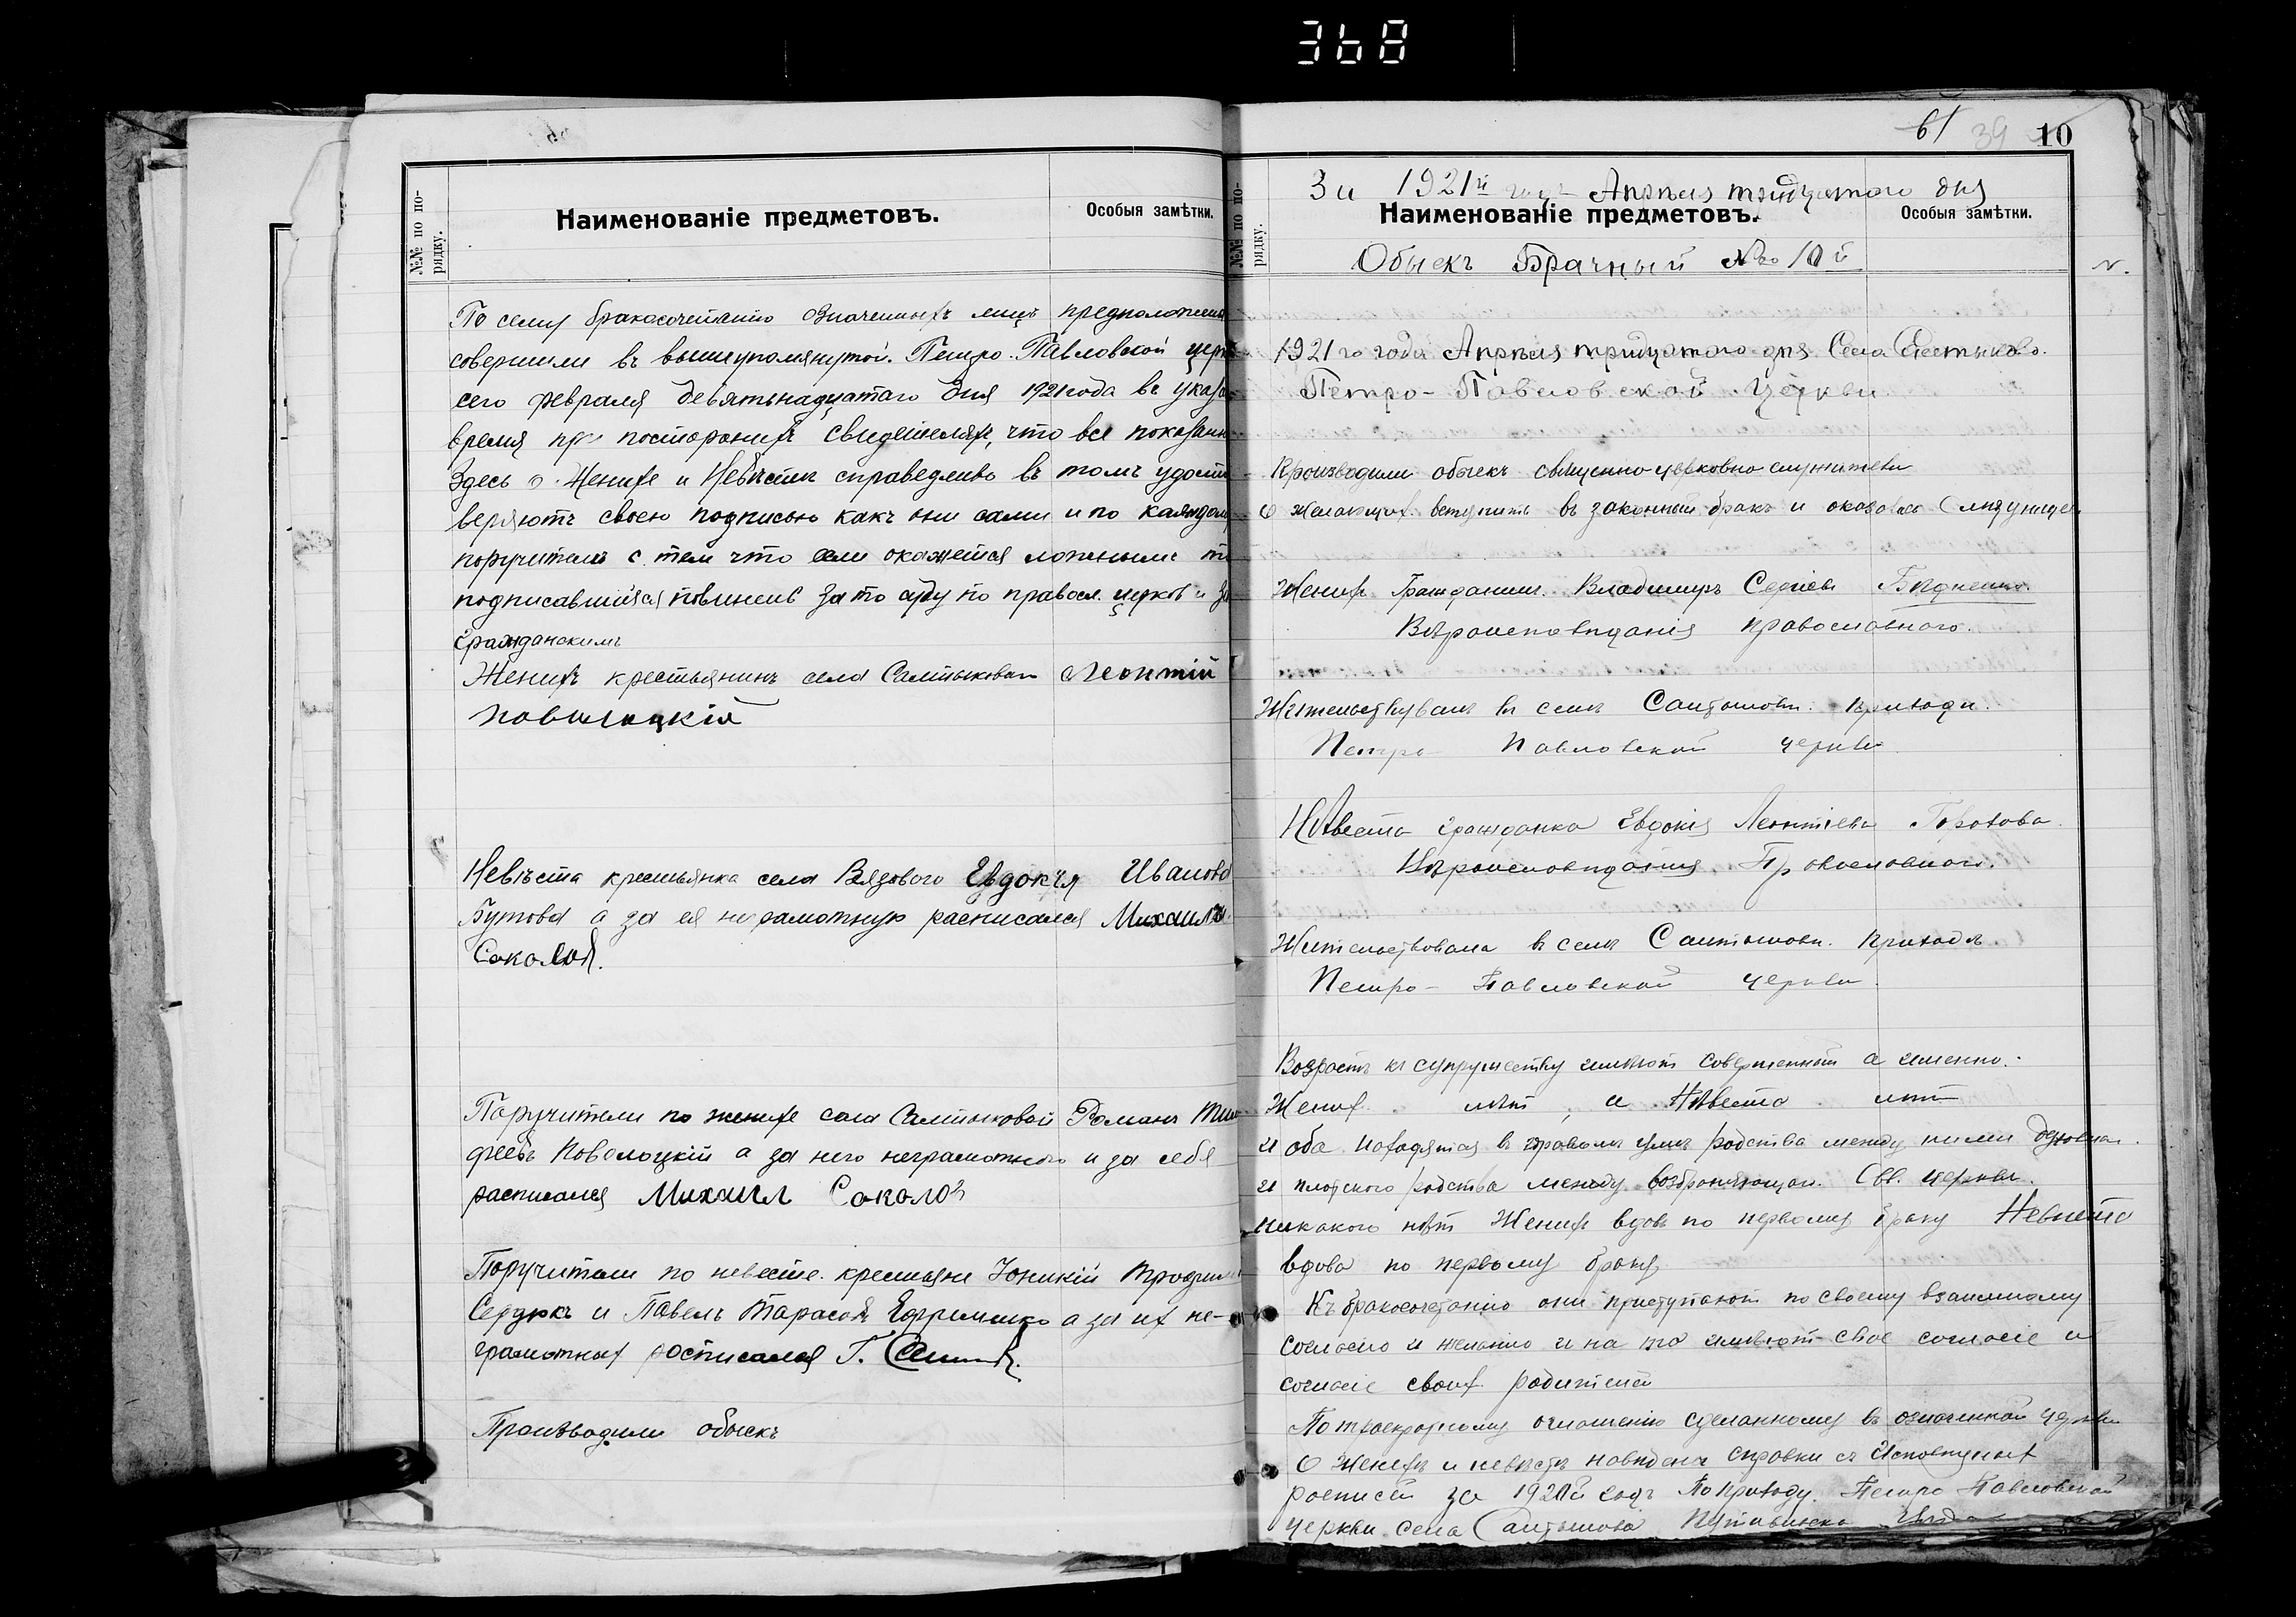 368
№№ по по-
рядку.
Наименованіе предметовъ.
Особыя замѣтки.
По сему бракосочетанію означенныхъ лицъ предположен
совершили въ вышеупомянутой Петро-Павловской церк
сего февраля девятьнадцатаго дня 1921 года въ указа
время при посторонних свидетелях, что все показанн
Здесь о Женихе и Невѣсте справедливо въ томъ удосто
веряютъ своею подписью какъ они сами и по каждом
поручители с тем что если окажется ложнымъ то
подписавшийся повиненъ за то суду по правосл. церков и
гражданскимъ
Женихъ крестьянинъ села Салтыковой Леонтій
Поволоцкій
Невѣста крестьянка села Вязового Евдокія Иванова
Бутова а за ея неграмотную расписался Михаилъ
Соколов.
Поручители по женихе села Салтыковой Романъ
Поволоцкій а за него неграмотного и за себя
расписался Михаил Соколов
Поручители по невесте крестьяне Іоникій Трофим
Сердюкъ и Павелъ Тарасов Ефременко а за их не-
грамотных росписался Г.
Производили обыскъ
61 39 10
За 1921й годъ Апрѣля тридцатого дня
№№ по по-
рядку.
Наименованіе предметовъ.
Особыя замѣтки.
Обыскъ Брачный № 10й
N.
1921го года Апрѣля тридцатого дня Села
Петро-Павловской Церкви
Производили обыскъ священно церковно служители
о желающих вступить въ законный бракъ и оказалось следующее
Жених Гражданин Владимиръ Сергіев
Вѣроисповѣданія православного.
Жительствувалъ въ селѣ приходи
Петро Павловской церкви
Невеста гражданка Евдокія Леонтіева
Вѣроисповѣданія Православного.
Жительствовала в селѣ приходѣ
Петро-Павловской церкви.
Возрастъ къ супружеству имѣют совершенный а именно:
Жених лѣт, а Невеста лѣт
и оба находятся в здравомъ умѣ родства между ними духовная
и плотского родства между возбраняющаго Св. церкви.
никакого нѣт Жених вдов по первому браку Невѣста
вдова по первому браку
Къ бракосочетанію они приступают по своему взаимному
согласію и желанію и на то имѣют свое согласіе и
согласіе своих родителей
По троекратному оглашенію сделанному въ означенной церкви
О Женихѣ и невѣстѣ справки съ Исповѣдных
росписей за 1920й годъ По приходу Петро Павловской
церкви села Путивльска уезда